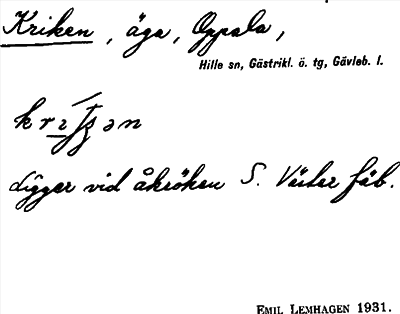 Kriken, äga, Oppala,
Hille sn, Gästrikl. ö. tg, Gävleb. l.
ligger vid åkröken S. Väster fäb.
EMIL LEMHAGEN 1931.